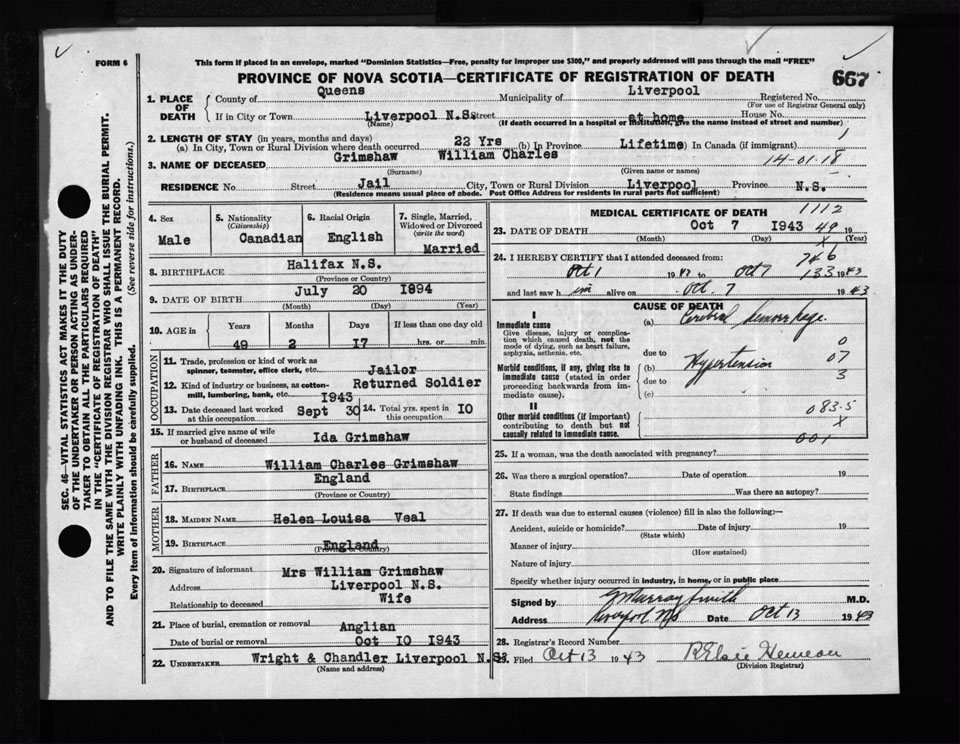 FORM 6
This form if placed in an envelope, marked "Dominion Statistics—Free, penalty for improper use $300," and properly addressed will pass through the mail "FREE"
PROVINCE OF NOVA SCOTIA—CERTIFICATE OF REGISTRATION OF DEATH
667
SEC. 46—VITAL STATISTICS ACT MAKES IT THE DUTY
OF THE UNDERTAKER OR PERSON ACTING AS UNDER-
TAKER TO OBTAIN ALL THE PARTICULARS REQUIRED
IN THE "CERTIFICATE OF REGISTRATION OF DEATH"
AND TO FILE THE SAME WITH THE DIVISION REGISTRAR WHO SHALL ISSUE THE BURIAL PERMIT.
WRITE PLAINLY WITH UNFADING INK. THIS IS A PERMANENT RECORD.
Every item of information should be carefully supplied. (See reverse side for instructions.)
1. PLACE OF DEATH
County of Queens Municipality of Liverpool Registered No.
(For use of Registrar General only)
If in City or Town Liverpool N.S. Street at home House No.
(Name) (If death occurred in a hospital or institution, give the name instead of street and number)
2. LENGTH OF STAY (in years, months and days)
(a) In City, Town or Rural Division where death occurred 22 Yrs (b) In Province Lifetime (c) In Canada (if immigrant) 1
3. NAME OF DECEASED Grimshaw William Charles 14-01.18
(Surname) (Given name or names)
RESIDENCE No. Street Jail City, Town or Rural Division Liverpool Province N.S.
(Residence means usual place of abode. Post Office Address for residents in rural parts not sufficient)
4. Sex
Male
5. Nationality
(Citizenship)
Canadian
6. Racial Origin
English
7. Single, Married,
Widowed or Divorced
(write the word)
Married
8. BIRTHPLACE Halifax N.S.
(Province or Country)
9. DATE OF BIRTH July 20 1894
(Month) (Day) (Year)
10. AGE in
Years Months Days If less than one day old
49 2 17 hrs. or min.
OCCUPATION
11. Trade, profession or kind of work as
spinner, teamster, office clerk, etc. Jailor
12. Kind of industry or business, as cotton-
mill, lumbering, bank, etc. Returned Soldier
13. Date deceased last worked
at this occupation 1943 Sept 30
14. Total yrs. spent in
this occupation 10
15. If married give name of wife
or husband of deceased Ida Grimshaw
FATHER
16. NAME William Charles Grimshaw
17. BIRTHPLACE England
(Province or Country)
MOTHER
18. MAIDEN NAME Helen Louisa Veal
19. BIRTHPLACE England
(Province or Country)
20. Signature of informant Mrs William Grimshaw
Address Liverpool N.S.
Relationship to deceased Wife
21. Place of burial, cremation or removal Anglian
Date of burial or removal Oct 10 1943
22. UNDERTAKER Wright & Chandler Liverpool N.S.
(Name and address)
MEDICAL CERTIFICATE OF DEATH 1112
23. DATE OF DEATH Oct 7 1943 49 19
(Month) (Day) (Year)
X
24. I HEREBY CERTIFY that I attended deceased from: 746
Oct 1 1943 to Oct 7 133 1943
and last saw him alive on Oct. 7 1943
CAUSE OF DEATH
I
Immediate cause
Give disease, injury or complica-
tion which caused death, not the
mode of dying, such as heart failure,
asphyxia, asthenia, etc.
(a) Cerebral hemorrhage.
due to
0
Morbid conditions, if any, giving rise to
immediate cause (stated in order
proceeding backwards from im-
mediate cause).
(b) Hypertension 07
due to
3
(c)
II
Other morbid conditions (if important)
contributing to death but not
causally related to immediate cause.
083.5
X
001
25. If a woman, was the death associated with pregnancy?
26. Was there a surgical operation? Date of operation 19
State findings Was there an autopsy?
27. If death was due to external causes (violence) fill in also the following:—
Accident, suicide or homicide? Date of injury 19
(State which)
Manner of injury
(How sustained)
Nature of injury
Specify whether injury occurred in industry, in home, or in public place
Signed by J Murray Smith M.D.
Address Liverpool NS Date Oct 13 1943
28. Registrar's Record Number
29. Filed Oct 13 1943
(Division Registrar)